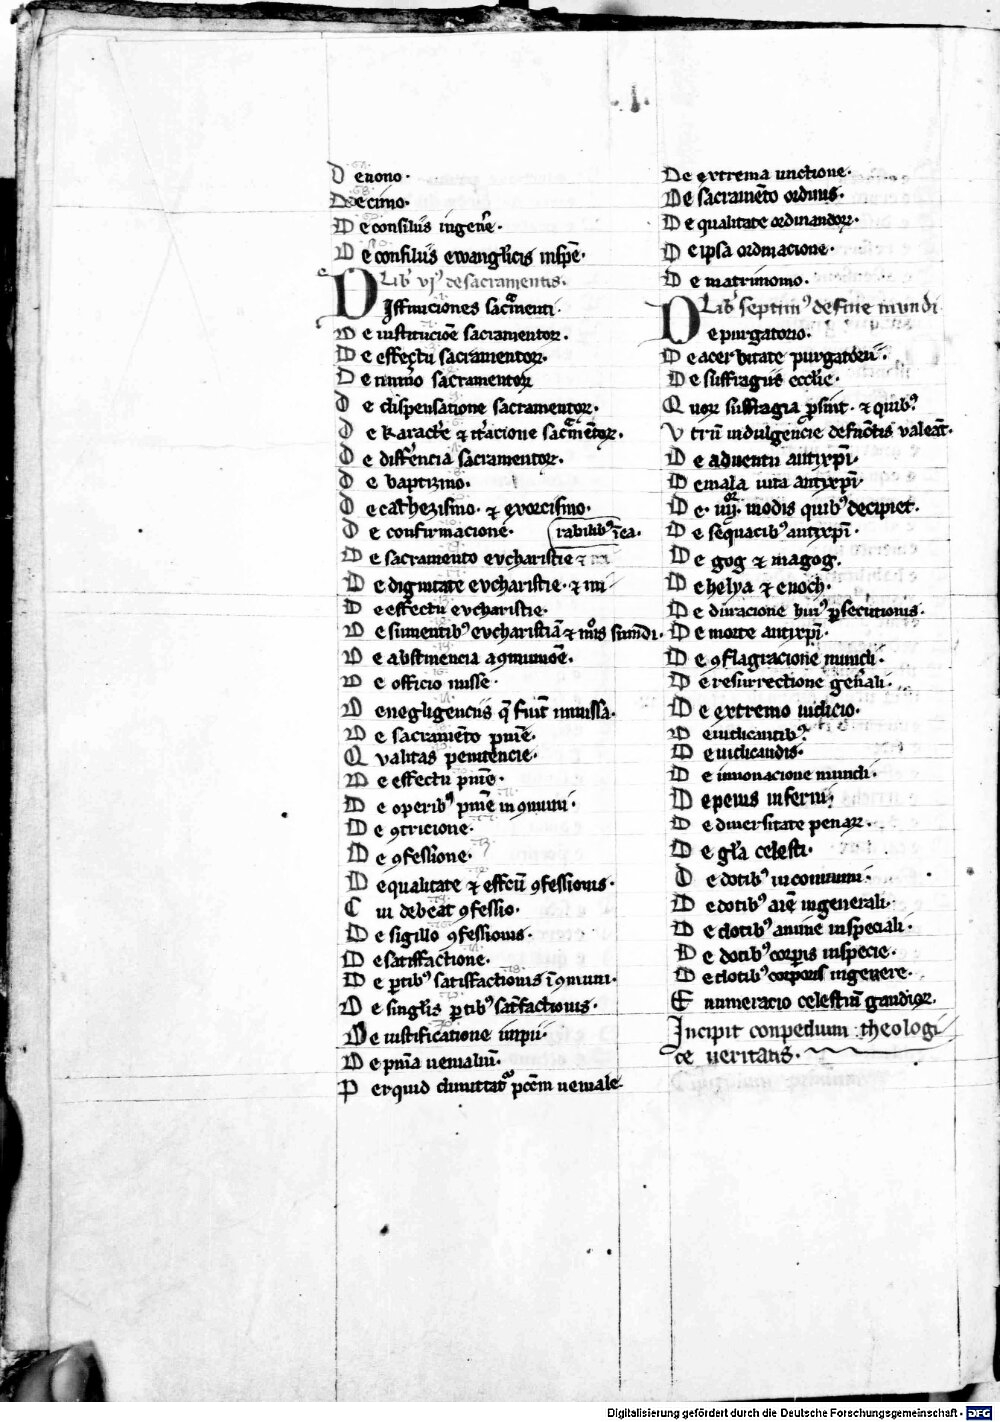 De nono·
Decimo·
De consiliis in gen̄e·
De consiliis ewangl̓icis in sp̄e·
Lib̓ vjꝰ de sacramentis·
Diffiniciones sacͣmenti·
De institucōe sacramentoꝝ·
De effectu sacramentoꝝ·
De nūo sacramentoꝝ
De dispensatione sacramentoꝝ·
De karact̓e ⁊ it̓acione sacͣmētoꝝ·
De diffe̓ncia sacramentoꝝ·
De baptizmo·
De cathezismo· ⁊ exorcismo·
De confirmacione· rabilibꝰ ī ea·
De sacramento evcharistie ⁊ mi
De dignitate evcharistie· ⁊ mi
De effectu evcharistie·
De sumentibꝰ evcharistiā ⁊ mͦis sumēdi·
De abstinencia a ꝯmuniōe·
De officio misse·
De negligenciis q̄ fiūt in missa·
De sacramēto pn̄ie·
Qvalitas penitencie·
De effectu pn̄ie·
De operibꝰ pn̄ie in ꝯmuni·
De ꝯtricione·
De ꝯfessione·
De qualitate ⁊ effc̄u ꝯfessionis·
Cui debeat ꝯfessio·
De sigillo ꝯfessionis·
De satisfactione·
De ꝑtibꝰ satisfactionis ī ꝯmuni·
De singl̓is ꝑtibꝰ satisfactionis·
De iustificatione impii·
De pn̄ia venialiū·
Per quid dimittatͬ pc̄cm veniale
De extrema unctione·
De sacramēto ordinis·
De qualitate ordinandoꝝ·
De ipsa ordinacione·
De matrimonio·
Lib̓ septimꝰ de fine mundi
De purgatorio·
De acerbitate purgatorii·
De suffragiis eccl̄ie·
Quoꝝ suffragia ꝓsint· ⁊ quibꝰ
Vtrū indulgencie defūctis valeāt·
De adventu antixp̄i·
De mala vita antixp̄i·
De· iiijͦͬ· modis quibꝰ decipiet·
De sequacibꝰ antixp̄i·
De gog ⁊ magog·
De helya ⁊ enoch·
De duracione huiꝰ ꝑsecutionis·
De morte antixp̄i·
De ꝯflagracione mundi·
De resurrectione gen̄ali·
De extremo iudicio·
De iudicantibꝰ
De iudicandis·
De innouacione mundi·
De penis inferni
De diuersitate penaꝝ·
De gl̄a celesti·
De dotibꝰ in comuni·
De dotibꝰ aīe in generali·
De dotibꝰ anime in speciali·
De dotibꝰ corꝑis in specie·
De dotibꝰ corporis in genere·
Enumeracio celestiū gaudioꝝ·
Incipit conpedium theologi
ce veritatis·
Digitalisierung gefördert durch die Deutsche Forschungsgemeinschaft - DFG